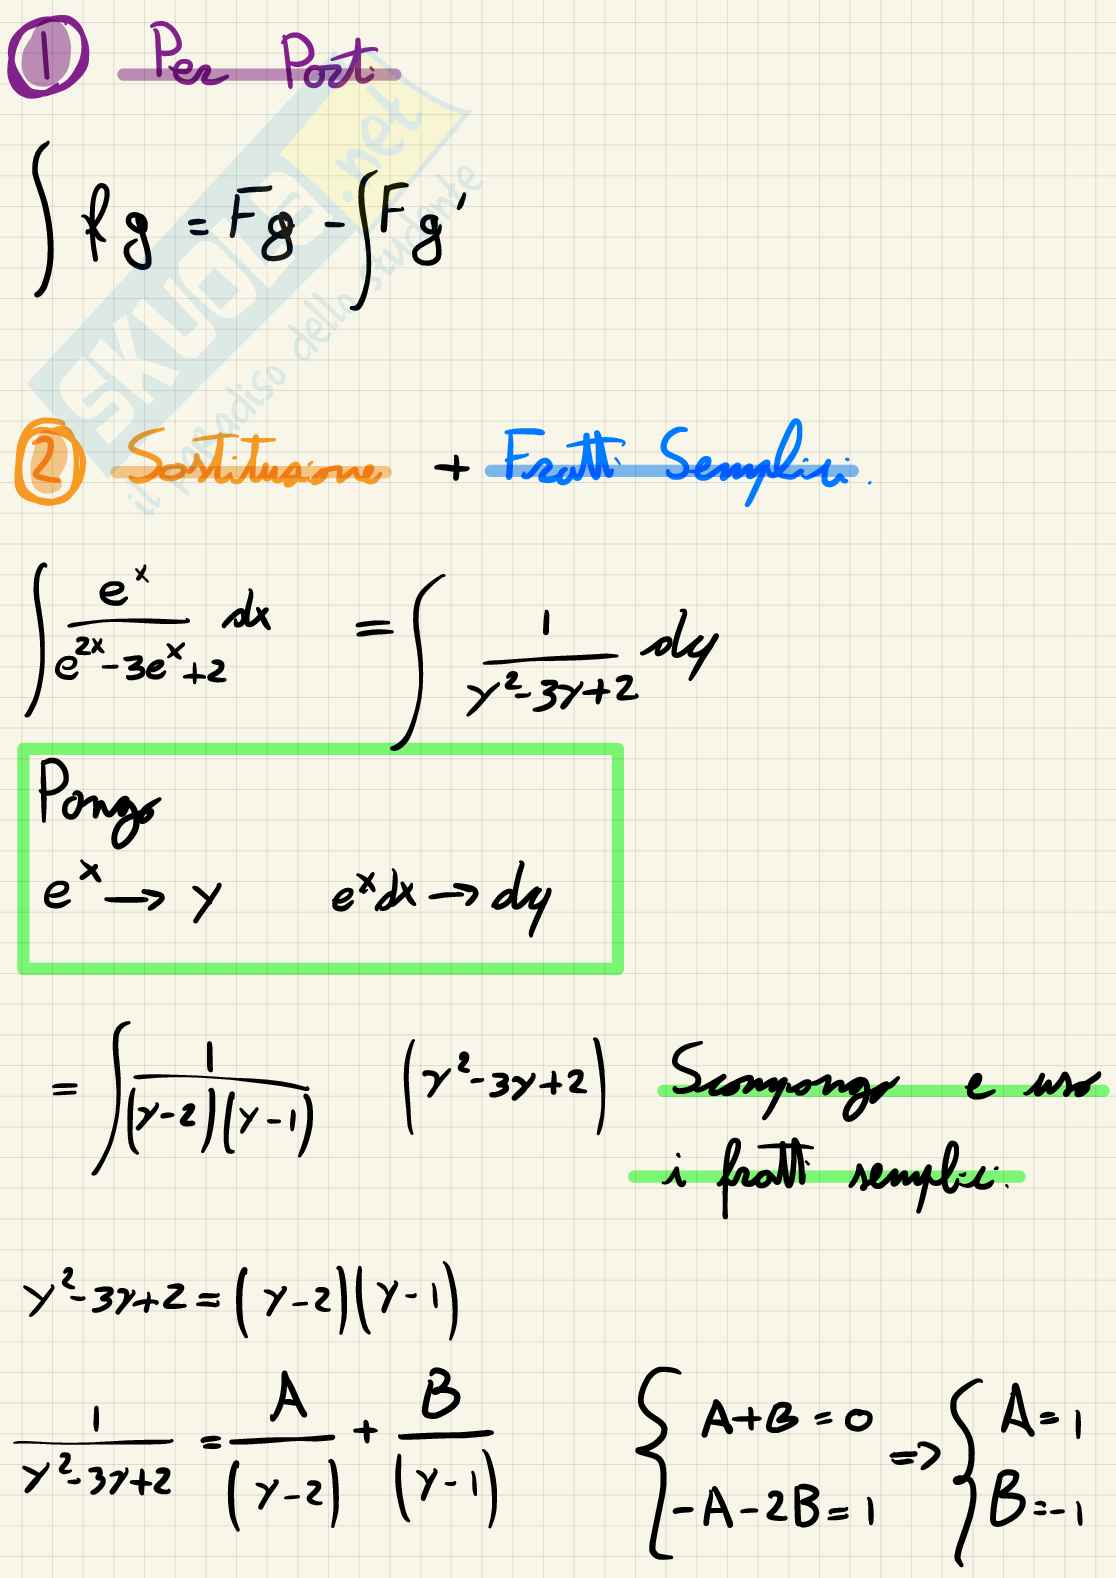 1 Per Parti
∫ f g = F g - ∫ F g'
2 Sostituzione + Fratti Semplici.
∫ e^x / (e^{2x} - 3e^x + 2) dx = ∫ 1 / (y² - 3y + 2) dy
Pongo
e^x → y e^x dx → dy
= ∫ 1 / ((y-2)(y-1)) (y² - 3y + 2) Scompongo e uso
i fratti semplici.
y² - 3y + 2 = (y-2)(y-1)
1 / (y² - 3y + 2) = A / (y-2) + B / (y-1) { A+B = 0 => { A = 1
-A - 2B = 1 B = -1
SKUOLA.net
il paradiso dello studente